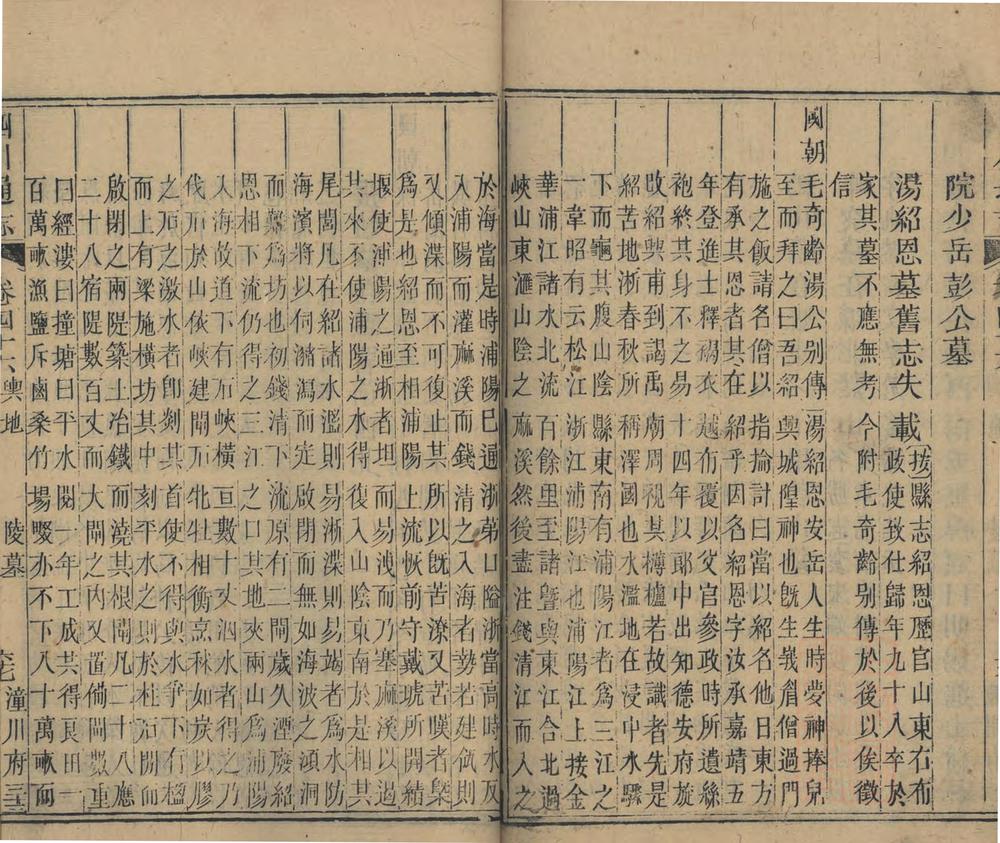 院少岳彭公墓
湯紹恩墓舊志失載按縣志紹恩歷官山東右布
政使致仕歸年九十八卒於
家其墓不應無考今附毛奇齡別傳於後以俟徵
信
國朝毛奇齡湯公別傳湯紹恩安岳人生時夢神捧兒
至而拜之曰吾紹興城隍神也旣生峩眉僧過門
施之飯請名僧以指掄計曰當以紹名他日東方
有承其恩者其在紹乎因名紹恩字汝承嘉靖五
年登進士釋褐衣越布覆以父官參政時所遺絲
袍終其身不之易十四年以郎中出知德安府旋
改紹興甫到謁禹廟周視其欂櫨若故識者先是
紹苦地浙春秋所稱澤國也水濫地在浸中水驟
下而龜其腹山陰縣東南有浦陽江者爲三江之
一韋昭有云松江浙江浦陽江也浦陽江上接金
華浦江諸水北流百餘里至諸暨與東江合北過
峽山東滙山陰之麻溪然後盡注錢清江而入之
於海當是時浦陽巳逼浙弟口隘浙當高時水反
入浦陽而灌麻溪而錢清之入海者勢若建瓴則
又傾渫而不可復止其所以旣苦潦又苦暵者槩
爲是也紹恩至相浦陽上流恢前守戴琥所開績
堰使浦陽之通浙者坦而易洩而乃塞麻溪以過
其來不使浦陽之水得復入山陰東南於是相其
尾閭凡在紹諸水濫則易浙渫則易竭者爲水防
海濱將以伺瀦瀉而定啟閉而無如海波之澒洞
而難爲坊也初錢清下流原有二閘歲久湮廢紹
恩相下流仍得之三江之口其地夾兩山爲浦陽
入海故道下有石峽橫亘數十丈泅水者得之乃
伐石於山依峽建閘石牝牡相銜烹秫如炭以膠
之石之激水者卽剡其首使不得與水爭下有檻
而上有梁施橫坊其中刻平水之則於柱石閘而
啟閉之兩隄築土冶鐵而澆其根閘凡二十八應
二十八宿隄數百丈而大閘之內又置備閘數重
曰經漊曰撞塘曰平水閱一年工成共得良田一
百萬畝漁鹽斥鹵桑竹場畷亦不下八十萬畝而
四川通志 卷四十六輿地 陵墓 潼川府